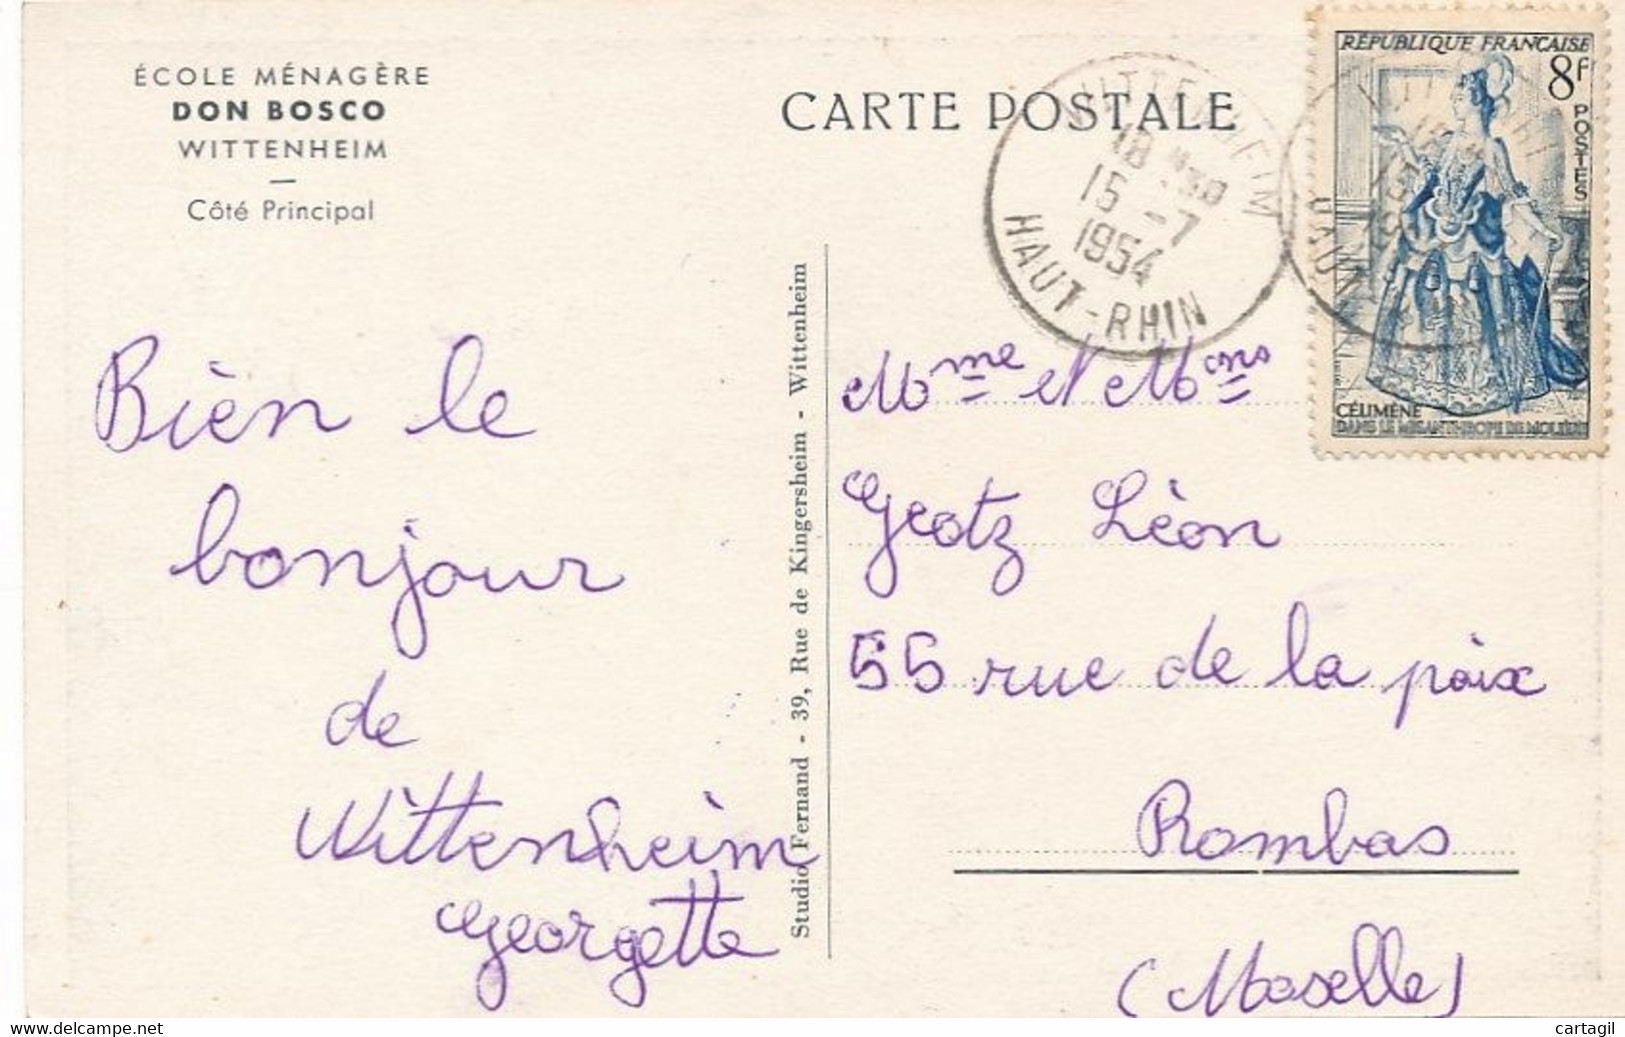 ÉCOLE MÉNAGÈRE
DON BOSCO
WITTENHEIM
Côté Principal
CARTE POSTALE
WITTENHEIM
18
15 -7
1954
HAUT-RHIN
RÉPUBLIQUE FRANÇAISE
8F
POSTES
CÉLIMÈNE
DANS LE MISANTHROPE DE MOLIÈRE
Bièn le
bonjour
de
Wittenheim
Georgette
Studio Fernand - 39, Rue de Kingersheim - Wittenheim
Mme et Mons
Geotz Lèon
55 rue de la paix
Rombas
(Moselle)
cartagil